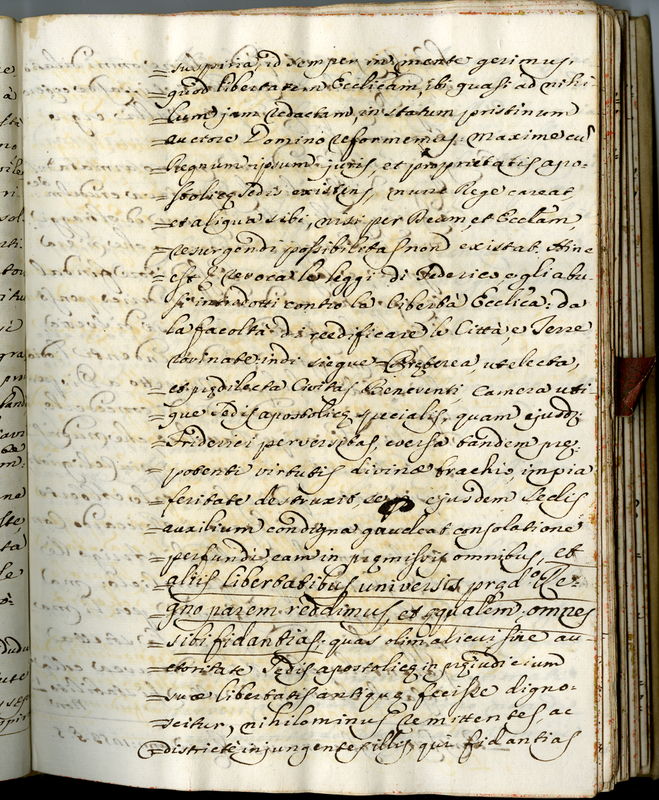 =suspiria, id semper in mente gerimus,
=quod libertatem Ecclicam, ibi quasi ad nihi-
=lum jam redactam, in statum pristinum
=auctore Domino reformemus. maxime cu
=Regnum ipsum juris, et proprietatis apo-
=stolicę Sedis existens, nunc Rege careat,
=et aliqua sibi, nisi per Deum, et Ecclam,
=resurgendi possibilitas non existat. Hine
=est ę revoca le leggi di Federico e gli abu-
=si introdotti contro la liberta Ecclica: da
la facoltà di reedificare le Città, e Terre
rovinate, indi siegue =Pręterea, ut electa,
=et prędilecta Civitas Beneventi Camera uti-
=que Sedis apostolicę specialis, quam ejusd:
=Friderici perversitas eversa tandem prę-
=potenti virtutis divinæ brachio, impia
=feritate destruxit, ejusdem Sedis
=auxilium condigna gaudeat consolatione
=perfundi eam in pręmissis omnibus, et
=aliis libertatibus universis pręd.o Re-
=gno parem reddimus, et ęqualem: omnes
=sibi fidantias, quas olim alicui sine au-
=ctoritate Sedis apostolicę in pręjudicium
=suæ libertatis antiquę fecisse digno-
=scitur, nihilominus remittentes, ac
=districte injungentes illis, qui fidantias